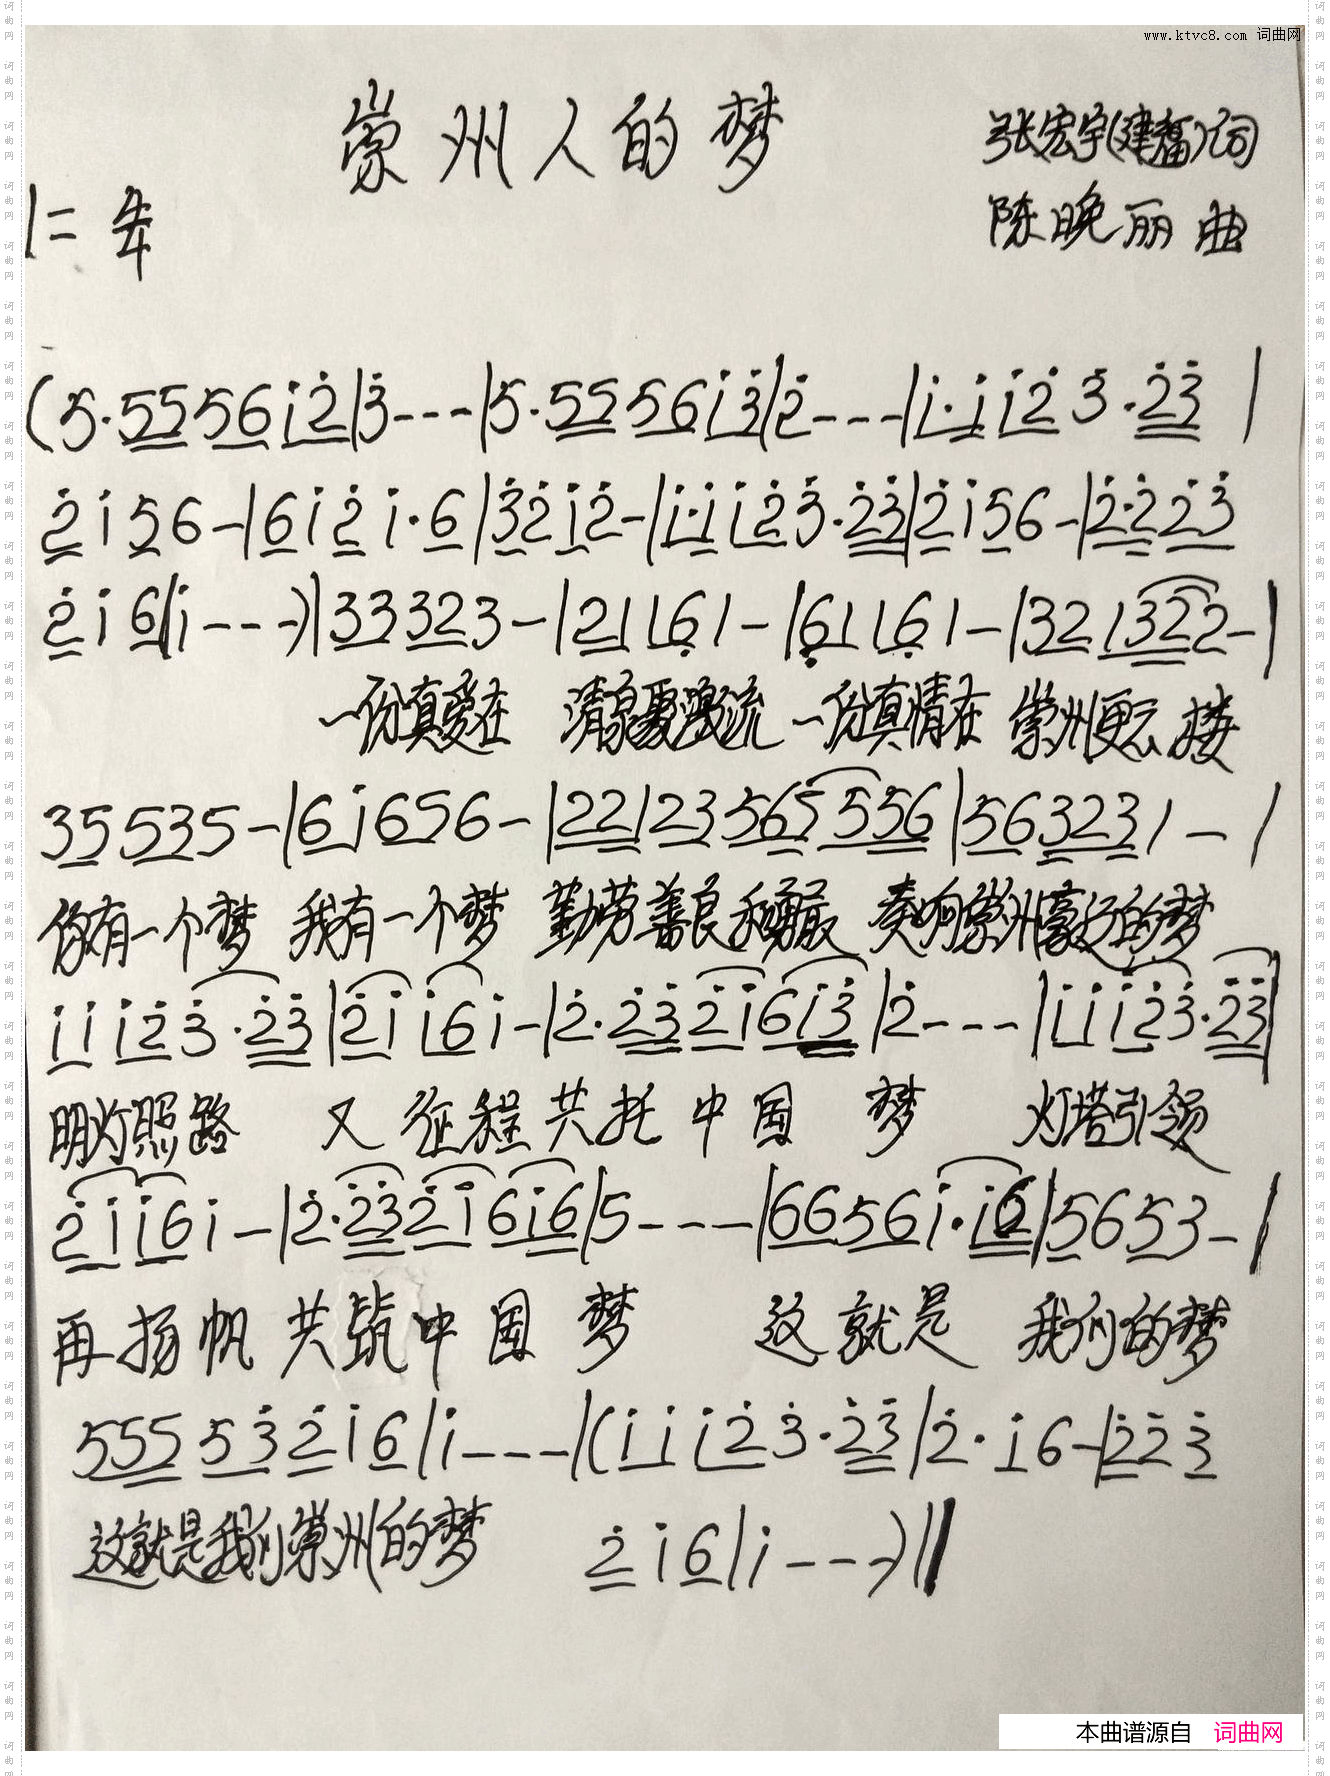 www.ktvc8.com 词曲网
崇州人的梦
张宏宇(建福)词
1=
陈晚丽 曲
(5·55 56 i̇2̇|3̇---|5·55 56 i̇3̇|2̇---|i̇·i̇ i̇2̇ 3̇·2̇3̇|
2̇ i̇ 5 6-|6 i̇ 2̇ i̇·6|3̇ 2̇ i̇ 2̇-|i̇·i̇ i̇2̇ 3̇·2̇3̇|2̇ i̇ 5 6-|2̇·2̇ 2̇3̇
2̇ i̇ 6|i̇---)|33 32 3-|21 16 1-|61 16 1-|32 132 2-|
一份真爱在 清泉聚激流 一份真情在 崇州更云接
35 535-|6i̇ 656-|22123565 556|56 323 1-|
你有一个梦 我有一个梦 勤劳善良和勇敢 奏响崇州豪迈的梦
i̇i̇ i̇2̇ 3̇·2̇3̇|2̇i̇ i̇6 i̇-|2̇·2̇3̇ 2̇i̇ 6i̇3̇|2̇---|i̇i̇ i̇2̇ 3̇·2̇3̇|
明灯照路 又征程共托中国 梦 灯塔引领
2̇i̇ i̇6 i̇-|2̇·2̇3̇ 2̇i̇ 6i̇6|5---|66 56 i̇·i̇6|56 53-|
再扬帆 共筑中国 梦 这就是 我们的梦
555 53̇ 2̇ i̇ 6|i̇---|(i̇i̇ i̇2̇ 3̇·2̇3̇|2̇·i̇ 6-|2̇2̇ 3̇
这就是我们崇州的梦 2̇ i̇ 6|i̇---)||
本曲谱源自 词曲网